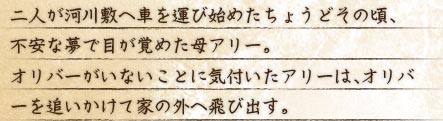 二人が河川敷へ車を運び始めたちょうどその頃、
不安な夢で目が覚めた母アリー。
オリバーがいないことに気付いたアリーは、オリバ
ーを追いかけて家の外へ飛び出す。